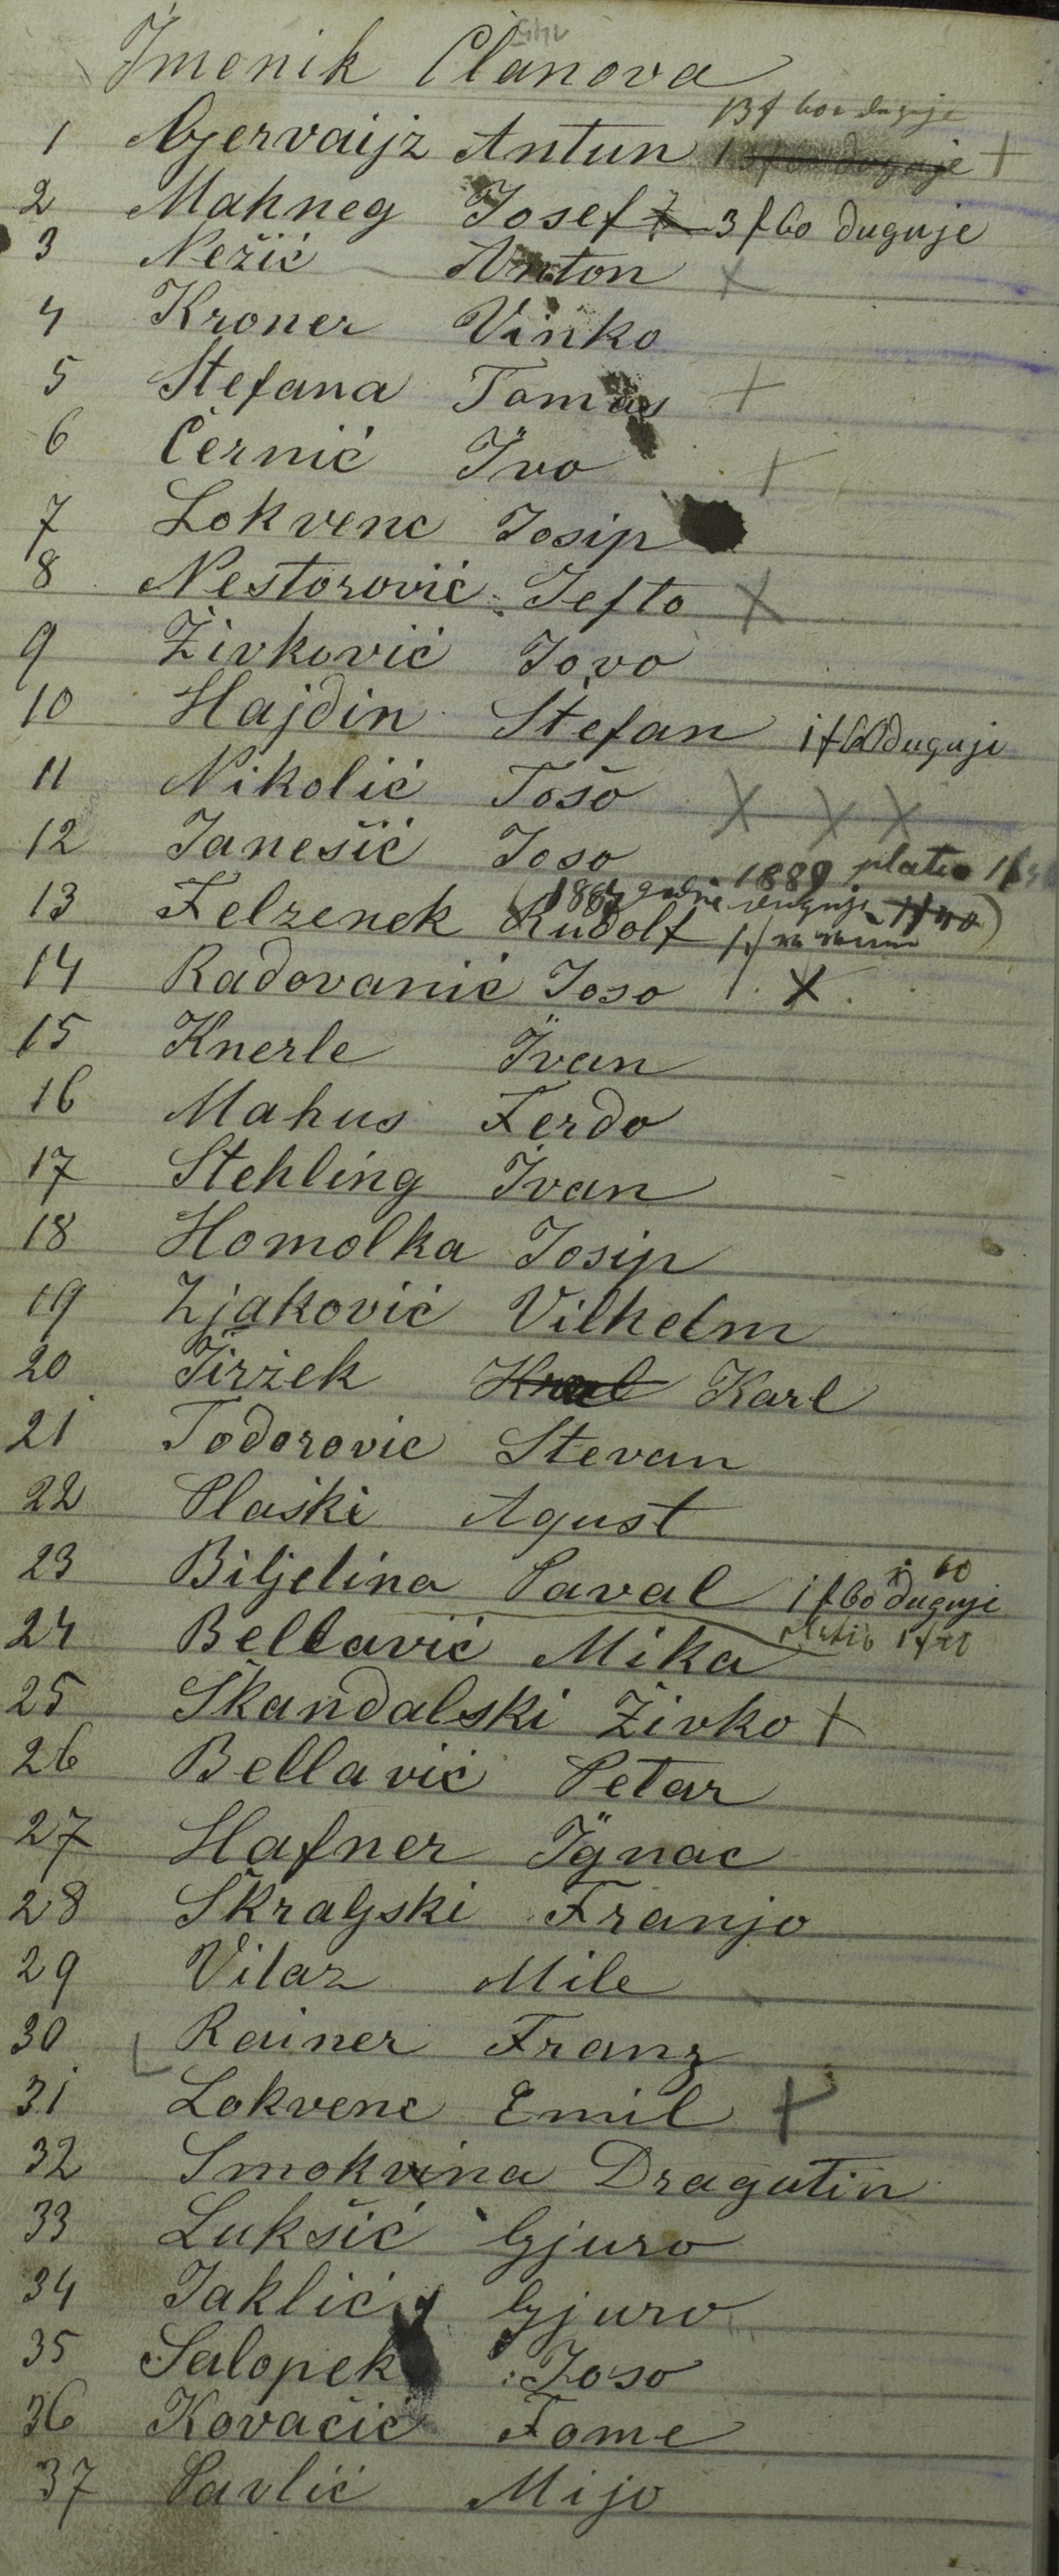 Imenik Clanova
13f 60 duguje
1 Gjervaijz Antun +
2 Mahneg Josef 3 f 60 duguje
3 Nežić Anton x
4 Kroner Vinko
5 Stefana Tomas +
6 Černić Ivo +
7 Lokvenc Josip
8 Nestorović Jefto x
9 Živković Jovo
10 Hajdin Stefan 1 f 60 duguje
11 Nikolić Tošo x x x
12 Janešić Joso
1889 platio
13 Felzenek Rudolf
14 Radovanić Joso x
15 Knerle Ivan
16 Mahus Ferdo
17 Stehling Ivan
18 Homolka Josip
19 Zjaković Vilhelm
20 Jiržek Kral Karl
21 Todorovic Stevan
22 Plaški Agust
23 Biljelina Paval 1 f 60 duguje
24 Bellavić Mika platio
25 Škandalski Živko +
26 Bellavić Petar
27 Hafner Ignac
28 Škraljski Franjo
29 Vilaz Mile
30 Rainer Franz
31 Lokvenc Emil +
32 Smokvina Dragutin
33 Lukšić Gjuro
34 Jaklić Gjuro
35 Salopek Joso
36 Kovačić Tome
37 Pavlić Mijo